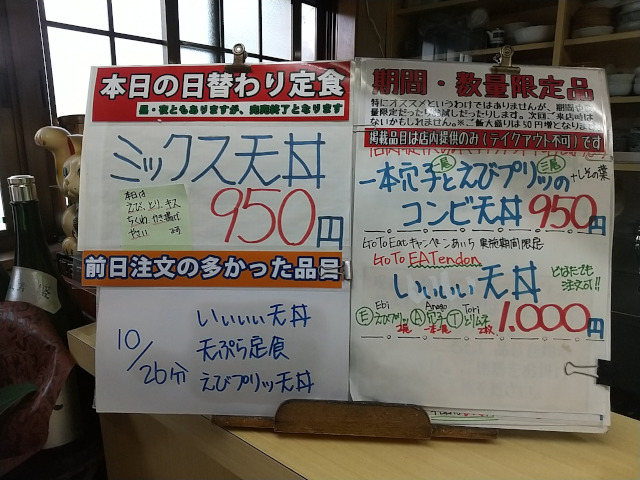 本日の日替わり定食
昼・夜ともありますが、完売終了となります
ミックス天丼
本日は
えび、とり、キス
ちくわ、かき揚げ
やさい
950円
前日注文の多かった品目
10/26分
いぃいぃ天丼
天ぷら定食
えびプリッツ天丼
期間・数量限定品
特にオススメというわけではありませんが、期間や
量限定だったり お試しだったりします。次回ご来店時は
ないかもしれません。※ご飯大盛りは50円増となりま
掲載品目は店内提供のみ(テイクアウト不可)です
一本穴子とえびプリッツの
一尾
二尾
+しその葉
コンビ天丼 950円
GoToEatキャンペーンあいち 実施期間限定
GoTo EATendon
いぃいぃ天丼
どなたでも
注文可!!
Ebi
Anago
Tori
Ⓔえびプリッツ Ⓐ穴子 Ⓣとりムネ
2尾
一本
2枚
1.000円